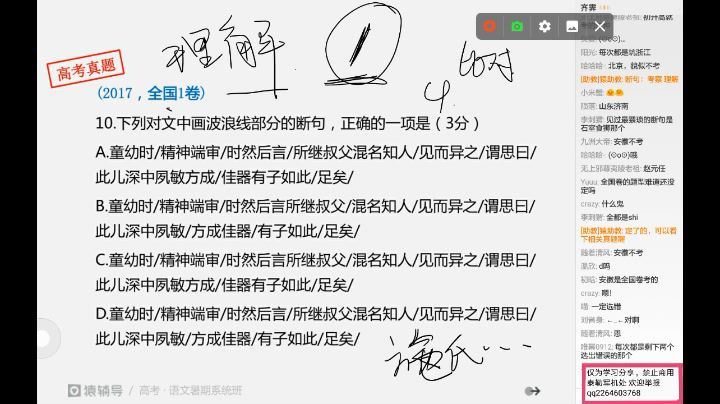 理解
1
4
比对
高考真题
(2017，全国1卷)
10.下列对文中画波浪线部分的断句，正确的一项是（3分）
A.童幼时/精神端审/时然后言/所继叔父混名知人/见而异之/谓思曰/
此儿深中夙敏方成/佳器有子如此/足矣/
B.童幼时/精神端审/时然后言所继叔父/混名知人/见而异之/谓思曰/
此儿深中夙敏/方成佳器/有子如此/足矣/
C.童幼时/精神端审/时然后言/所继叔父混名知人/见而异之/谓思曰/
此儿深中夙敏/方成佳器/有子如此/足矣/
D.童幼时/精神端审/时然后言/所继叔父/混名知人/见而异之/谓思曰/
此儿深中夙敏/方成/佳器有子如此/足矣/
猿辅导 / 高考·语文暑期系统班
齐霁
阳光: 每次都是坑浙江
哈哈哈: 北京，貌似不考
[助教]猿助教: 断句！考察 理解
小米蟹:
陨落: 山东济南
李刺猬: 见过最狠琐的断句是
石室食狮那个
九洲大帝: 安徽不考
哈哈哈: (⊙o⊙)哦
无上邪尊夷陵老祖: 赵元任
Yuuu: 全国卷的题军难道还没
定吗
crazy: 什么鬼
李刺猬: 全都是shi
[助教]猿助教: 定了的，可以看
下相关真题喔
随着清风: 安徽不考
温欣: d吗
初晗: 安徽是全国卷考的
crazy: 顺！
喵: 一定选错
刘善身: ←_←对啊
随着清风: 恩
唯翼0912: 每次都是剩下两个
选出错误的那个
仅为学习分享，禁止商用
泰勒军机处 欢迎举报
qq2264603768